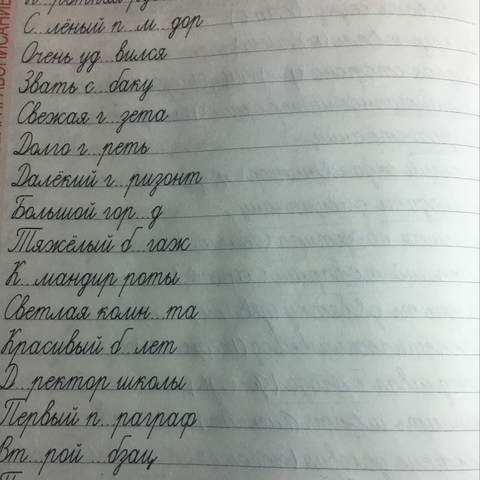 ПРАВОПИСАНИЕ
С...лёный п...м...дор
Очень уд...вился
Звать с...баку
Свежая г...зета
Долго г...реть
Далёкий г...ризонт
Большой гор...д
Тяжёлый б...гаж
К...мандир роты
Светлая комн...та
Красивый б...лет
Д...ректор школы
Первый п...раграф
Вт...рой ...бзац